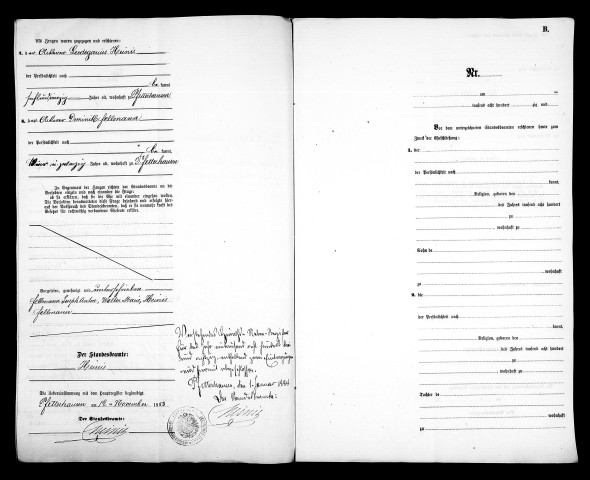 Als Zeugen waren zugezogen und erschienen:
1. der Ackerer
Heinis
der Persönlichkeit nach
be kannt
Jahre alt, wohnhaft zu Pfetterhausen
2. der Ackerer Dominik Fellmann
der Persönlichkeit nach
be kannt
Jahre alt, wohnhaft zu Pfetterhausen
In Gegenwart der Zeugen richtete der Standesbeamte an die
Verlobten einzeln und nach einander die Frage:
ob sie erklären, daß sie die Ehe mit einander eingehen wollen.
Die Verlobten beantworteten diese Frage bejahend und erfolgte hier-
auf der Ausspruch des Standesbeamten, daß er sie nunmehr kraft des
Gesetzes für rechtmäßig verbundene Eheleute erkläre.
Vorgelesen, genehmigt und unterschrieben
Fellmann Joseph
Maria, Heinis
Fellmann
Der Standesbeamte:
Heinis
Die Uebereinstimmung mit dem Hauptregister beglaubigt
Pfetterhausen am 12 ten November 1883
Der Standesbeamte:
Heinis
Vorstehendes Heiraths-Neben-Register
für das Jahr
acht hundert drei
und achtzig
wird hiermit abgeschlossen.
Pfetterhausen, den 1. Januar 1884
Der Standesbeamte:
Heinis
B.
Nr.
am ten
tausend acht hundert zig und
Vor dem unterzeichneten Standesbeamten erschienen heute zum
Zweck der Eheschließung:
1. der
der Persönlichkeit nach
kannt,
Religion, geboren den
des Jahres tausend acht hundert
zu
, wohnhaft zu
Sohn de
, wohnhaft
zu
2. die
der Persönlichkeit nach
kannt,
Religion, geboren den
des Jahres tausend acht hundert
zu
, wohnhaft zu
Tochter de
wohnhaft
zu